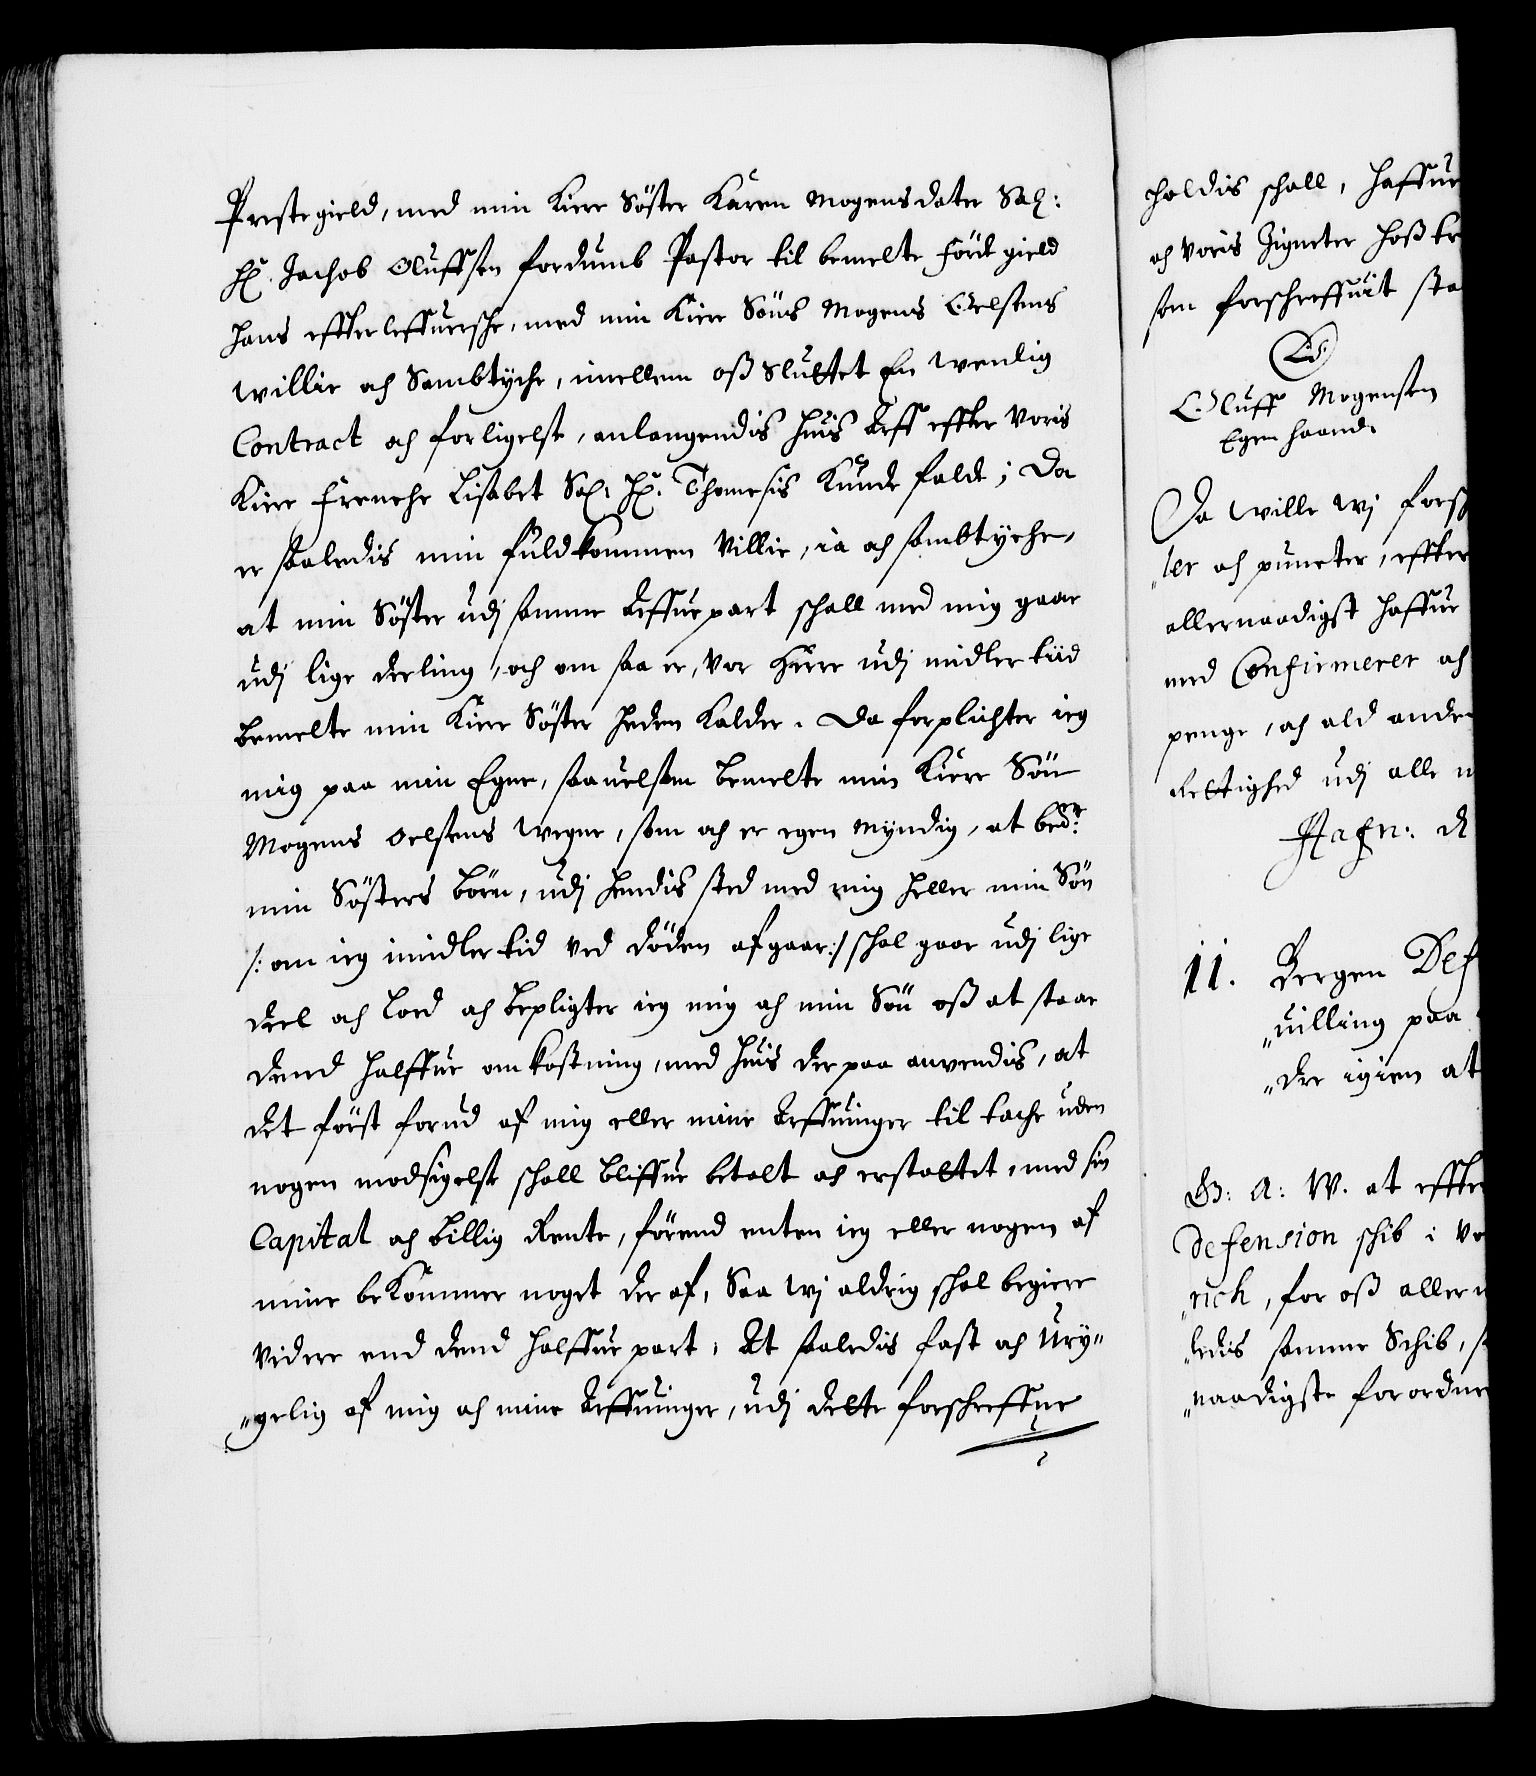 Prestegield, med min Kiere Söster Karen Mogensdater Sal:
Hr. Jachob Oluffsen fordumb Pastor til bemelte Förde gield
hans effterleffuersche, med min Kiere Söns Mogens Oelsens
willie och Sambtyche, imellem oß Sluttet En wenlig
Contract och forligelse, anlangendis huis Arff effter Voris
Kiere Freneke Lisabet Sal: Hr. Thomesis Kunde falde; Da
er saaledis min fuldkommen Villie, ia och sambtyche,
at min Söster udj samme Arffuepart schall med mig gaae
udj lige deeling, och om saa er, Vor Herre udj midlertiid
bemelte min Kiere Söster heden Kalder. Da forplichter ieg
mig paa min Egne, saauelsom bemelte min Kiere Sön
Mogens Oelsens wegne, som och er egen Myndig, at bedte
min Sösters börn, udj hendis sted med mig heller min Sön
/: om ieg imidlertid ved döden afgaar:/ schal gaae udj lige
deel och lod och bepligter ieg mig och min Sön oß at staae
dend halffue omkostning, med huis der paa anvendis, at
det först forud af mig eller mine Arffuinger til tache uden
nogen modsigelse schall bliffue betalt och erstattet, med sin
Capital och billig Rente, förend enten ieg eller nogen af
mine bekommer noget der af, Saa wj aldrig schal begiere
Videre end dend halffue part, At saaledis fast och Ury„
„gelig af mig och mine Arffuinger, udj dette forschreffne
holdis schall, haffue
och Voris Zigneter hoß tr
som forschreffuit sta
LS
Oluff Mogensen
Egen haand.
Da wille wj forsch
„ler och puncter, effter
allernaadigst haffue
med Confirmerer och
penge, och ald anden
Rettighed udj alle m
Hafn: d
11. Bergen Def
„uilling paa
„der igien at
G: A: W. at effter
Defension schib i Vo
„rich, for oß allern
„ledis samme Schib, s
„naadigste forordne